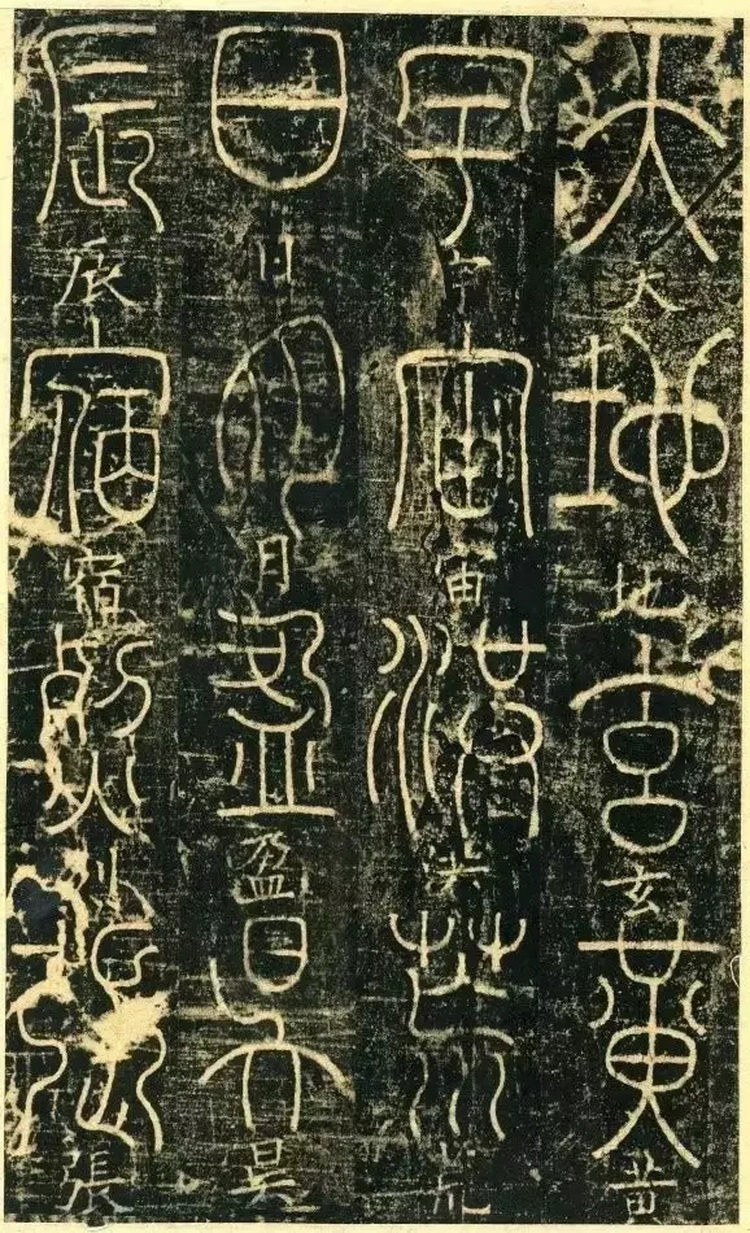 天天地地玄玄黃黄
宇宇宙宙洪洪荒荒
日日月月盈盈昃昃
辰辰宿宿列列張張